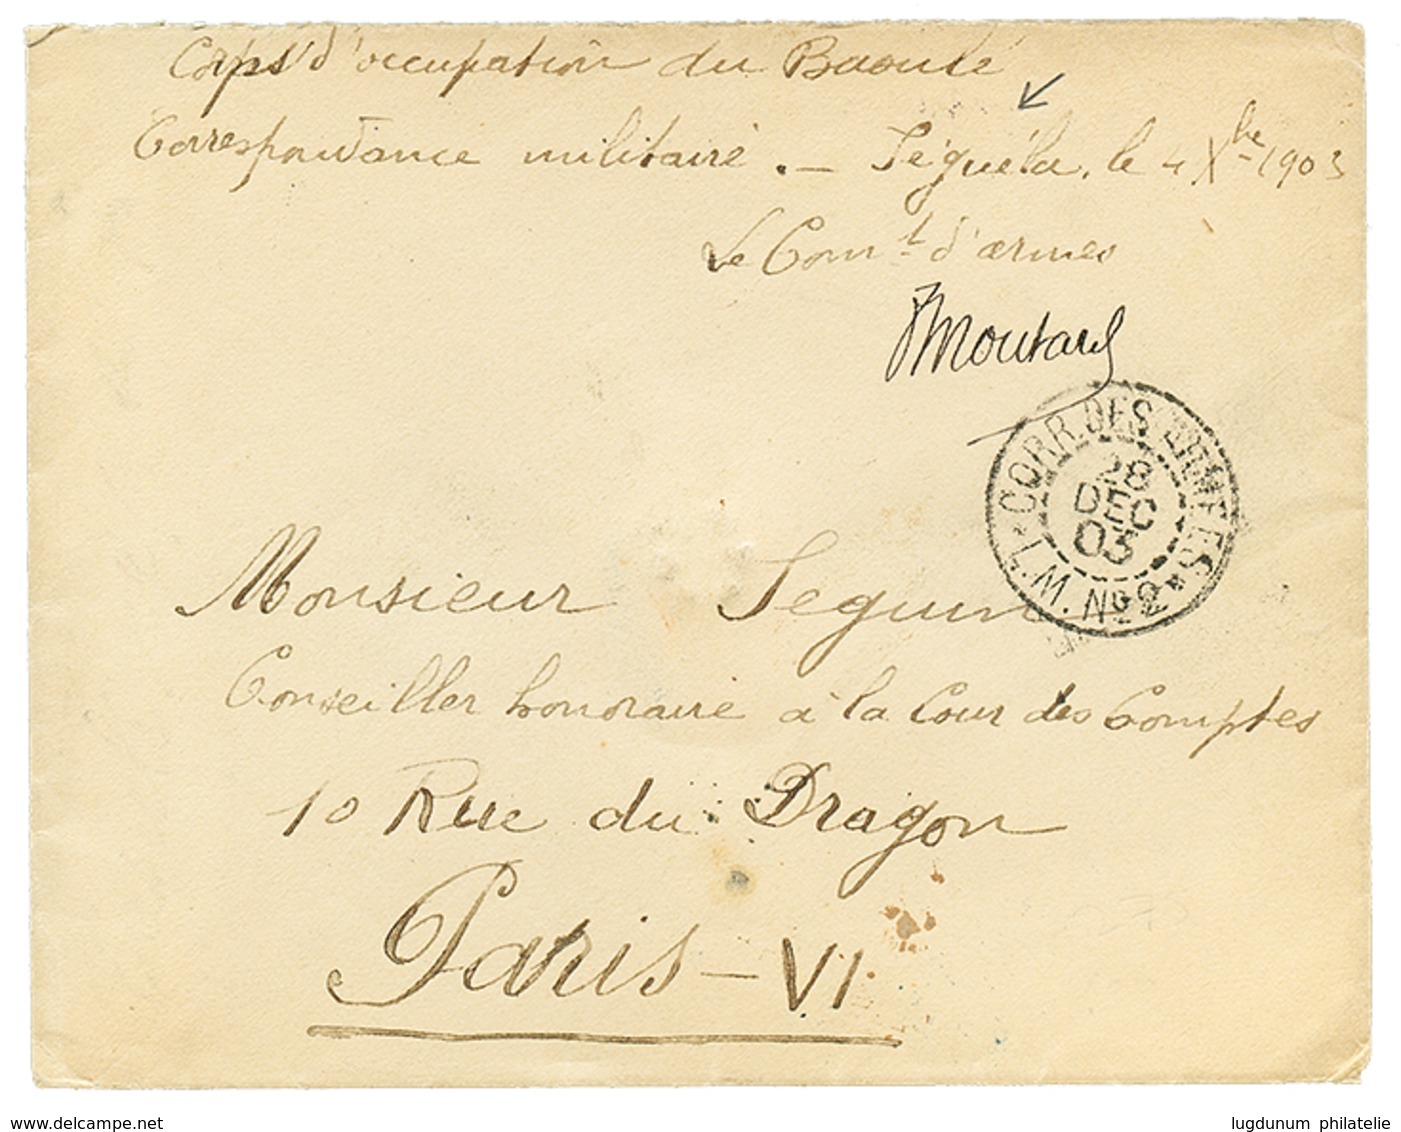 Corps d'occupation du Baoulé
Correspondance militaire. — Séguéla, le 4 Xbre 1903
Le Comt d'armes
Moutard
CORR. DES ARMEES
28
DEC
03
L.M. No 2
Monsieur Seguin
Conseiller honoraire à la Cour des Comptes
10 Rue du Dragon
Paris - VI
www.delcampe.net
lugdunum philatelie